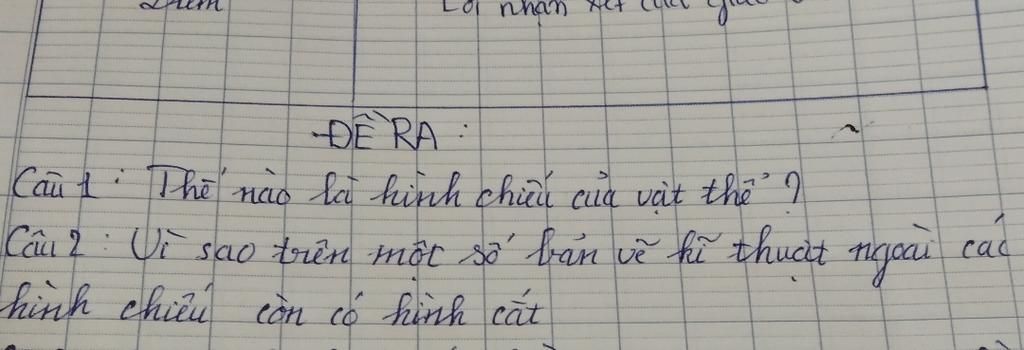 Điểm Lời nhận xét của giáo
ĐỀ RA :
Câu 1 : Thế nào là hình chiếu của vật thể ?
Câu 2 : Vì sao trên một số bản vẽ kĩ thuật ngoài các
hình chiếu còn có hình cắt